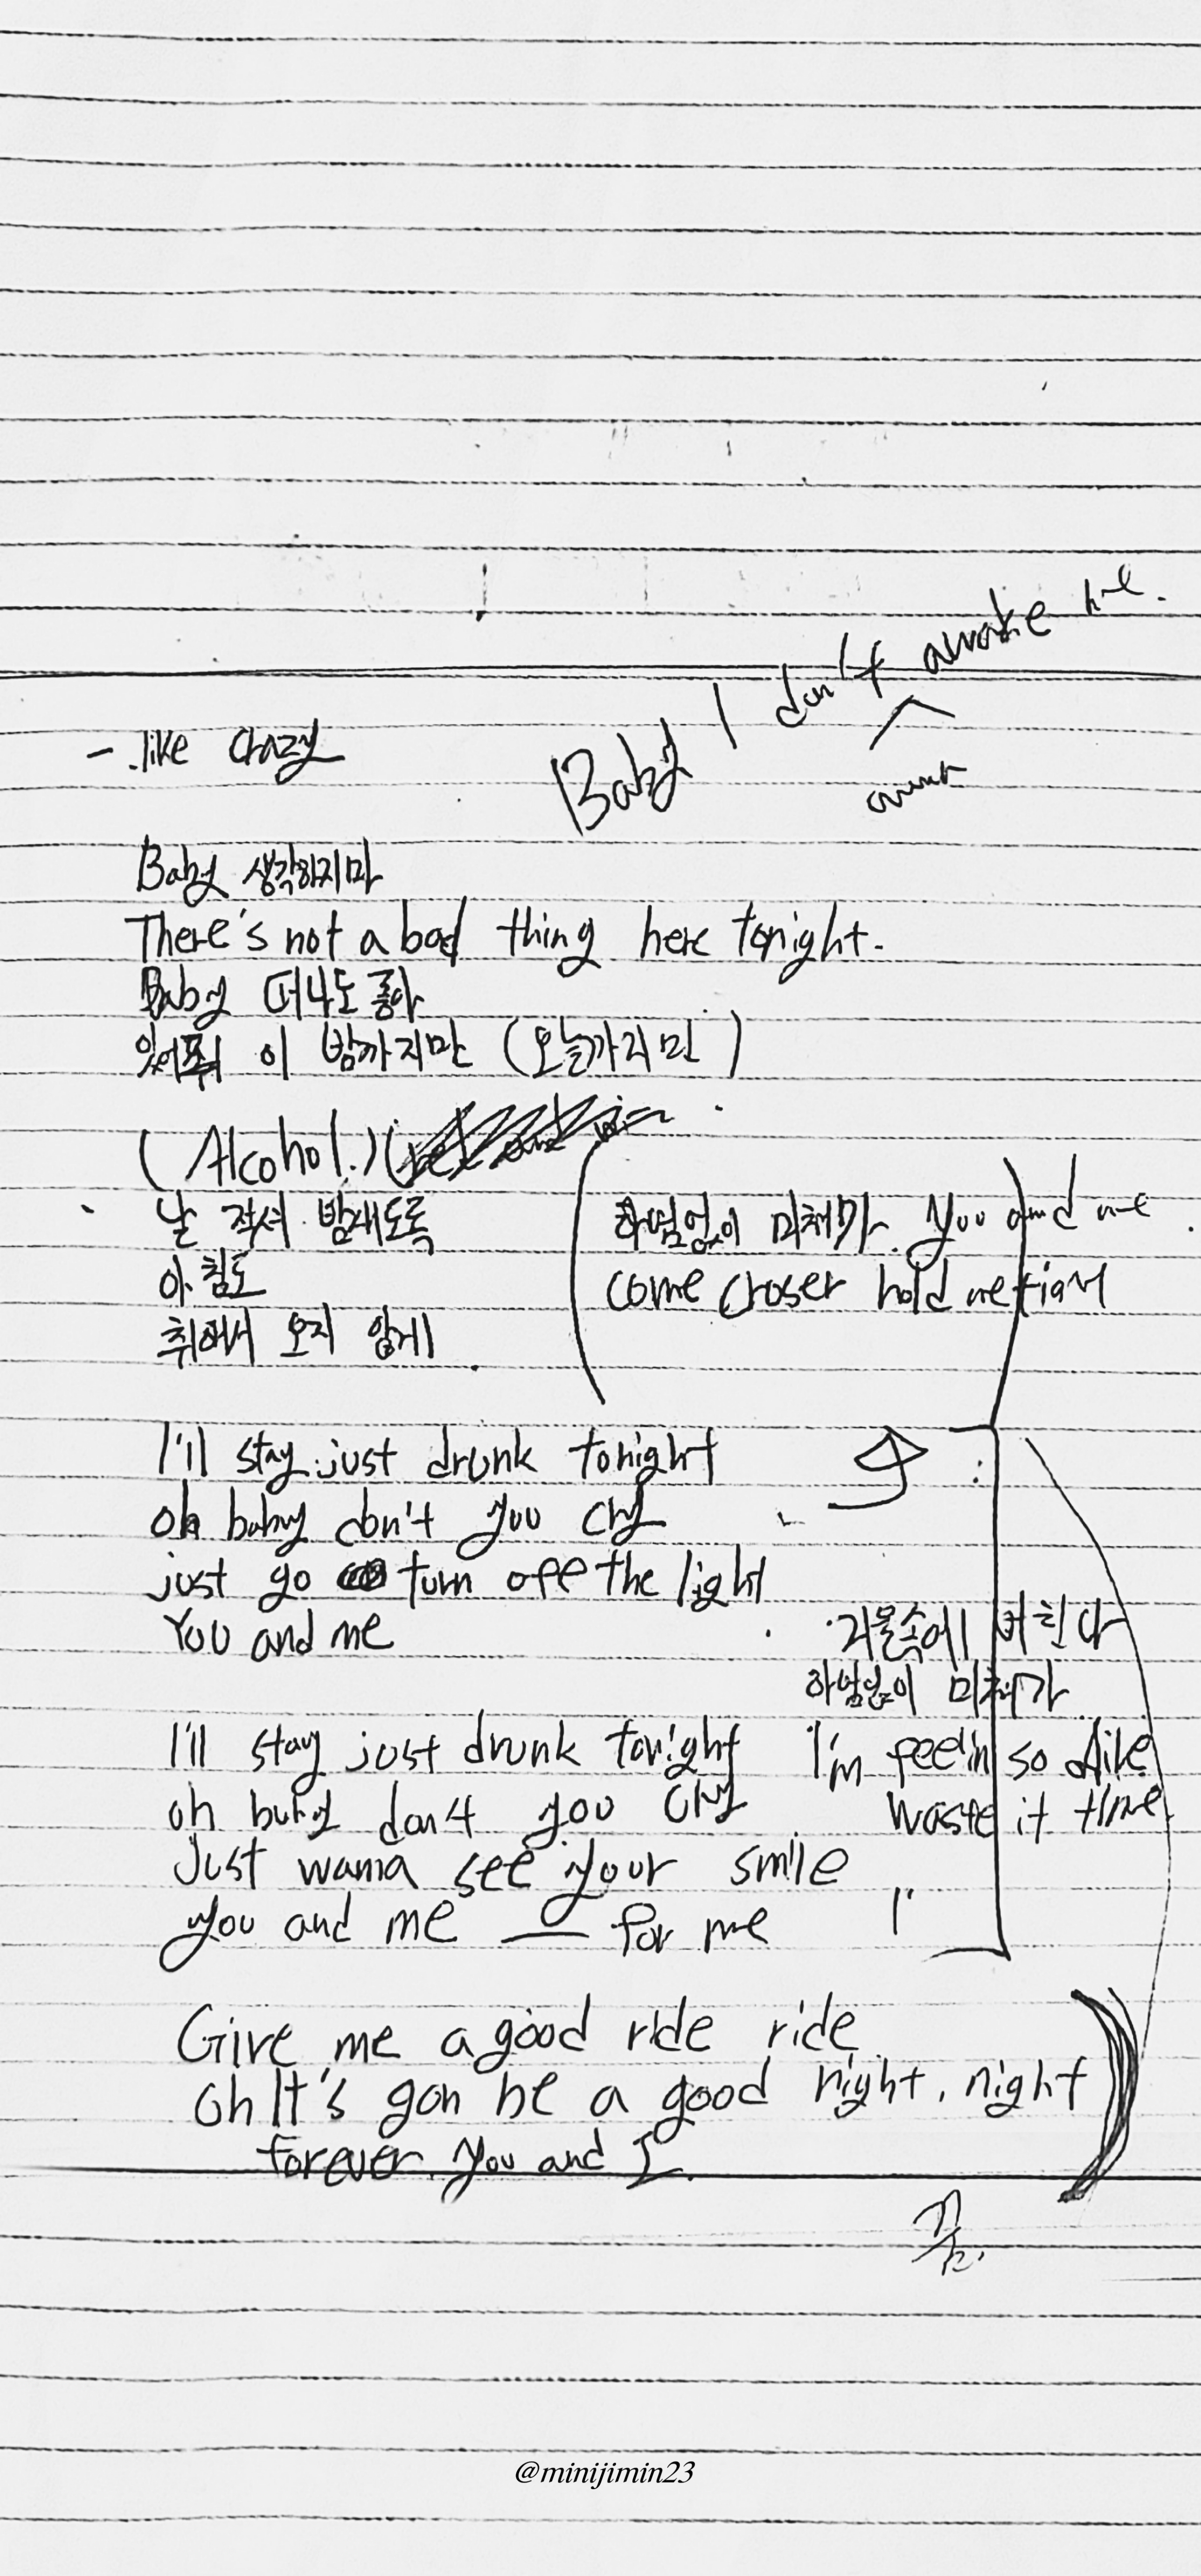 Baby I don't awake me.
- like crazy
Baby 생각하지마
There's not a bad thing here tonight.
Baby 떠나도 좋아
있어줘 이 밤까지만 (오늘까지만)
(Alcohol.)
날 적셔 밤새도록
아침도
취해서 오지 않게
하염없이 미쳐가 you and me
come croser hold me
I'll stay just drunk tonight
oh baby don't you cry
just go turn off the light
You and me
거울속에 비친 나
하염없이 미쳐가
I'm feelin so Alive
waste it time
I'll stay just drunk tonight
oh baby don't you cry
Just wanna see your smile
you and me — for me
Give me a good ride ride
oh It's gon be a good night, night
forever. you and I.
@minijimin23